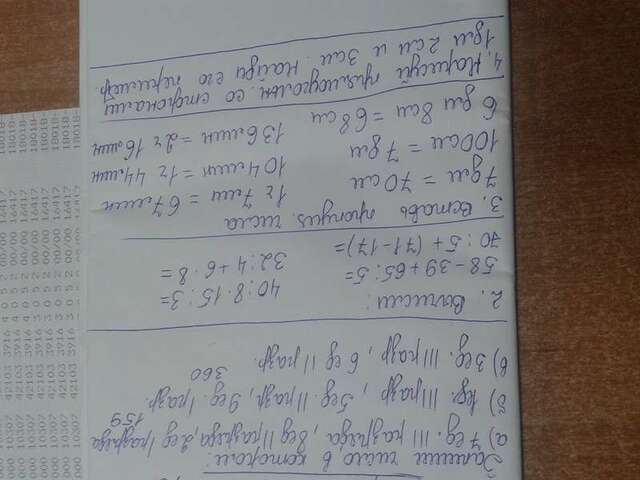 Запиши число в котором:
а) 7 ед. III разряда, 8 ед II разряда, 2 ед I разряда
б) 1 ед. III разр, 5 ед. II разр, 9 ед. I разр. 159
в) 3 ед. III разр, 6 ед II разр. 360
2. Вычисли:
58 - 39 + 65 : 5 =
40 : 8 · 15 : 3 =
70 : 5 + (71 - 17) =
32 : 4 + 6 · 8 =
3. Вставь пропущ. числа
7 дм = 70 см
1 ч 7 мин = 67 мин
100 см = 7 дм
104 мин = 1 ч 44 мин
6 дм 8 см = 68 см
136 мин = 2 ч 16 мин
4. Нарисуй прямоугольн. со сторонами
1 дм 2 см и 3 см. Найди его периметр.